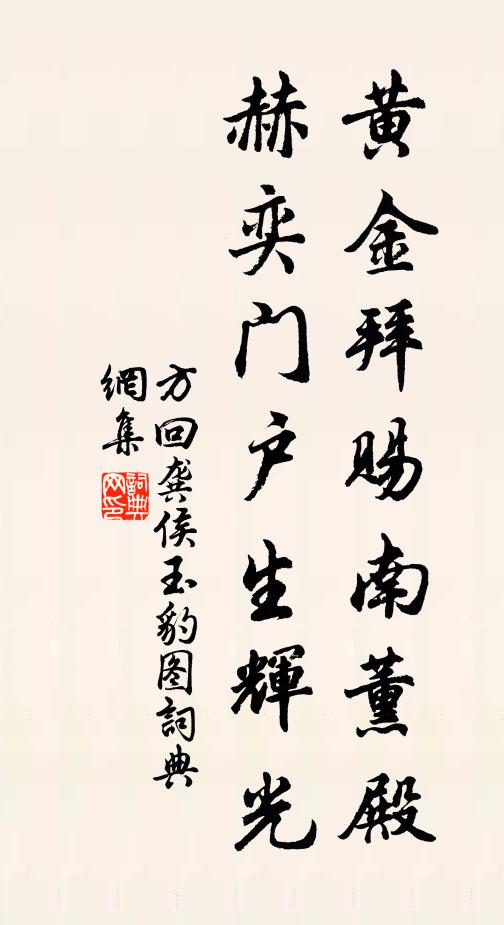 黄金拜赐南薰殿
赫奕門户生輝光
方回龚侯玉豹图詞典
網集
詞典网印